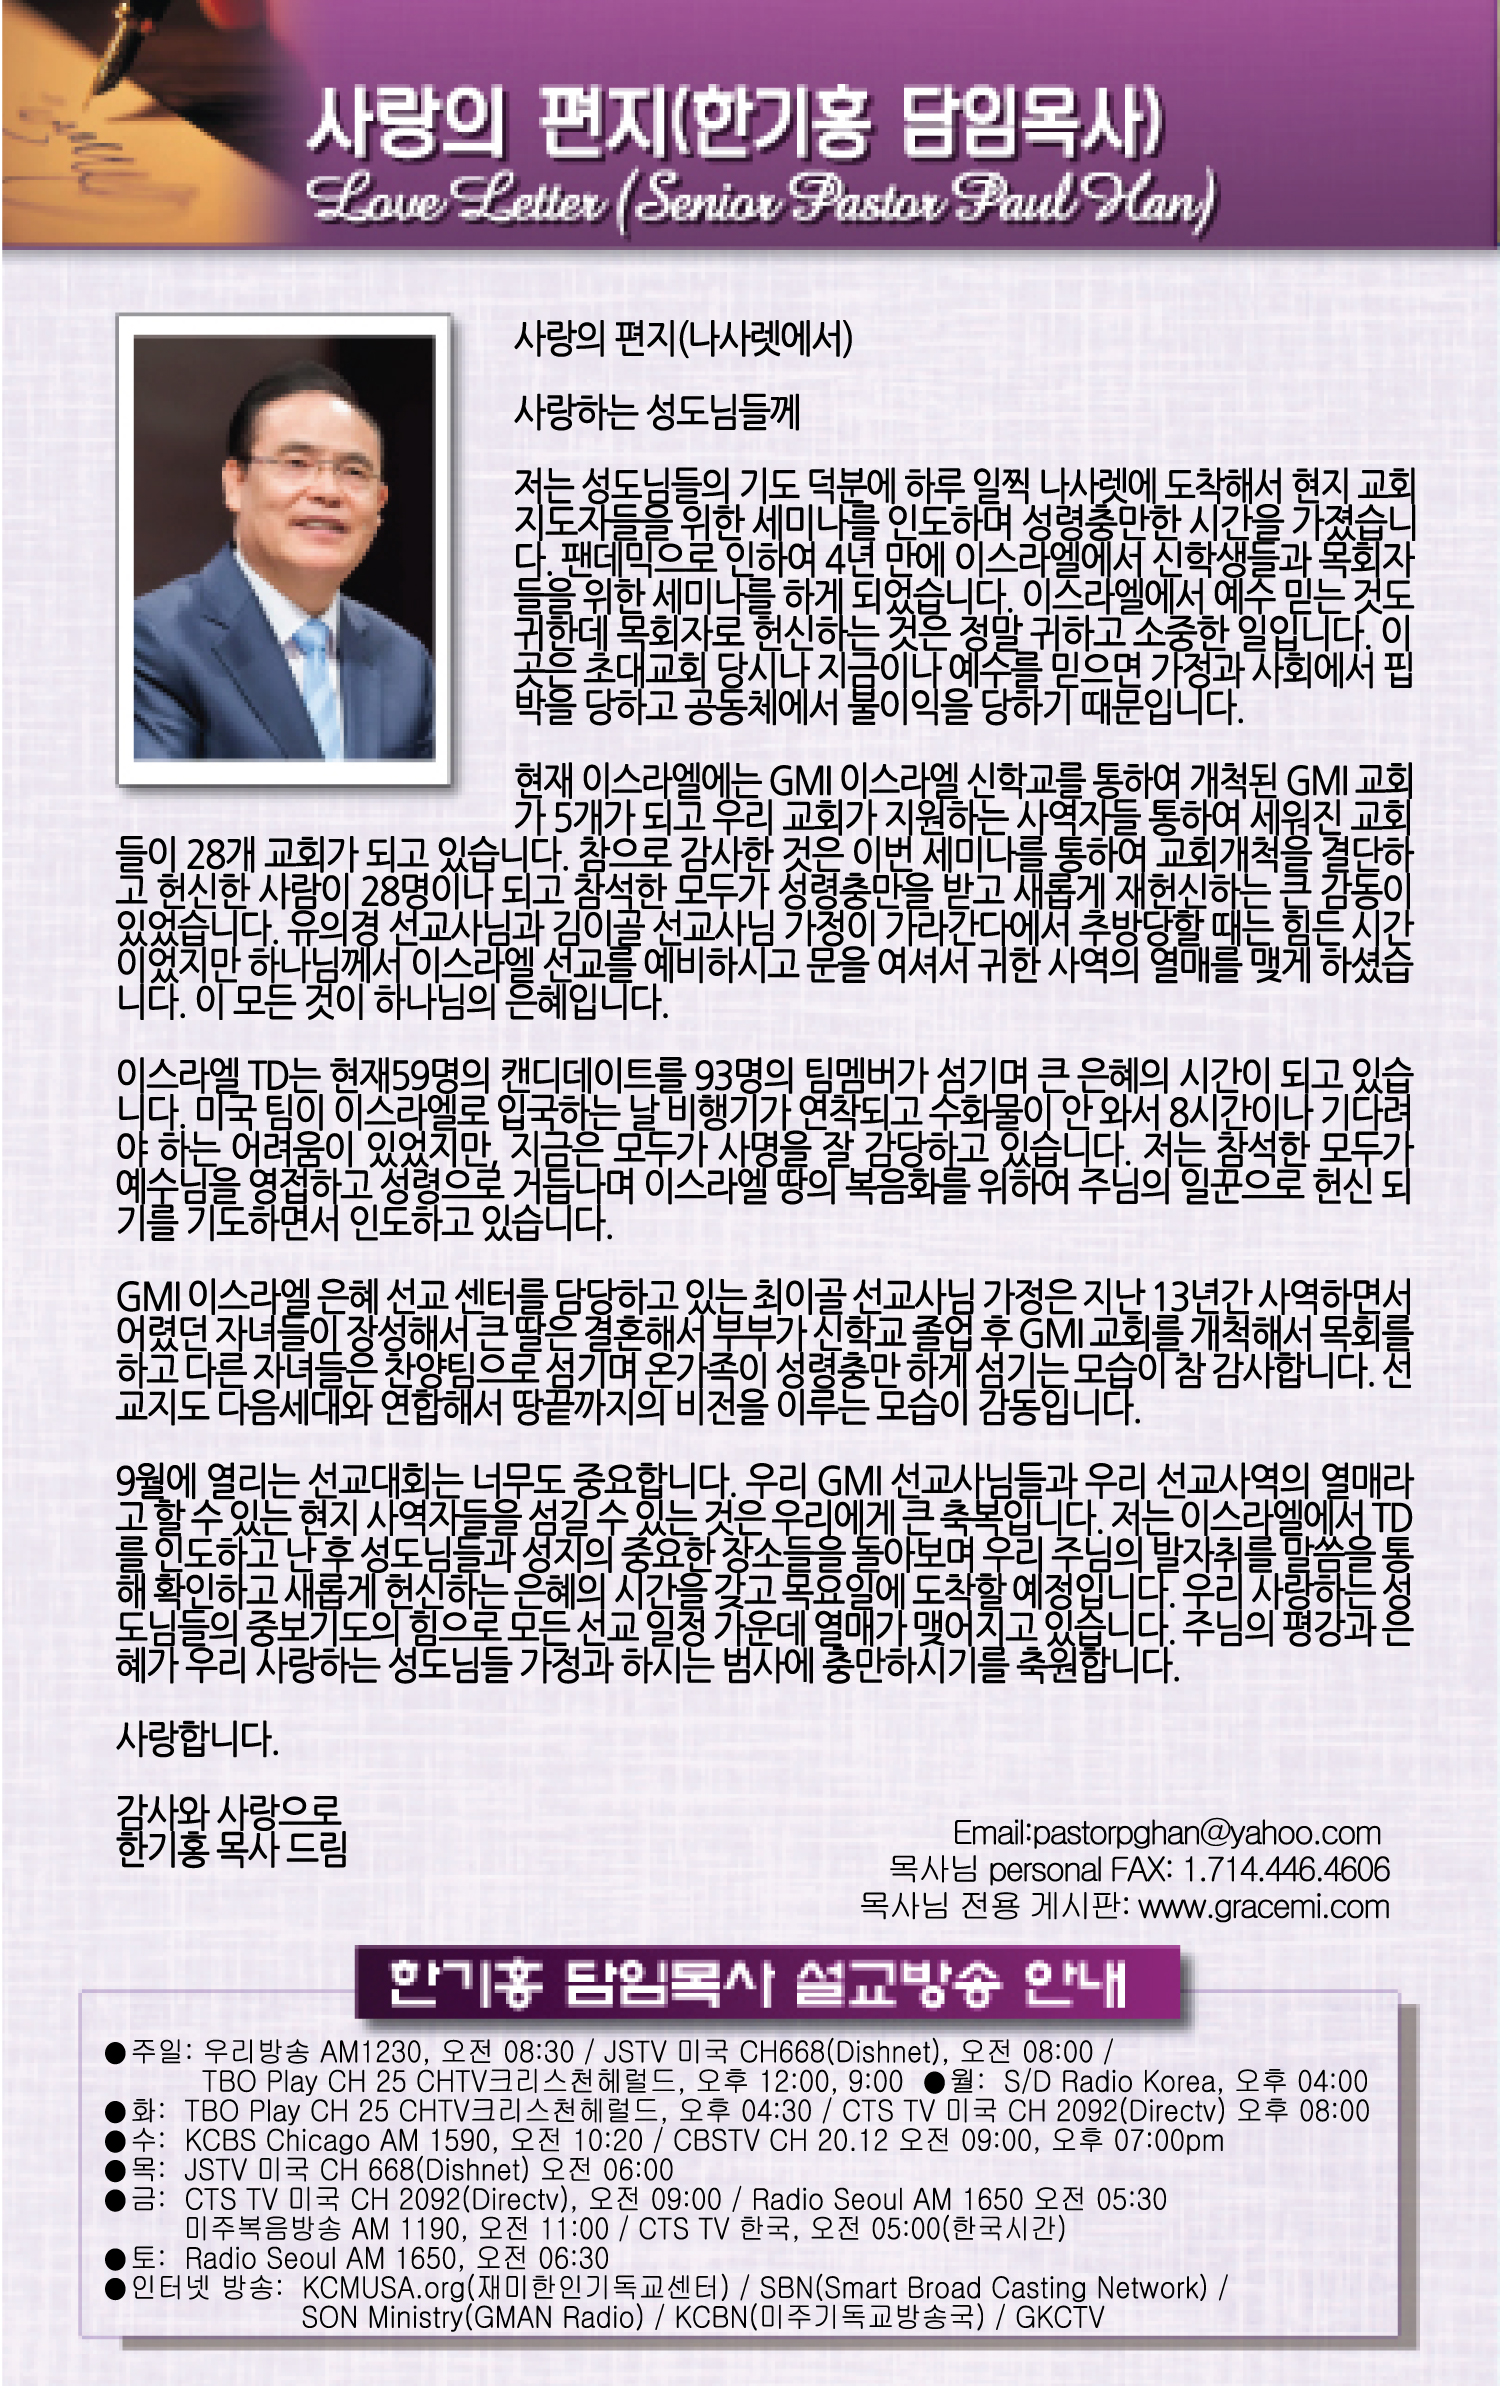 사랑의 편지(한기홍 담임목사)
Love Letter (Senior Pastor Paul Han)
사랑의 편지(나사렛에서)
사랑하는 성도님들께
저는 성도님들의 기도 덕분에 하루 일찍 나사렛에 도착해서 현지 교회
지도자들을 위한 세미나를 인도하며 성령충만한 시간을 가졌습니
다. 팬데믹으로 인하여 4년 만에 이스라엘에서 신학생들과 목회자
들을 위한 세미나를 하게 되었습니다. 이스라엘에서 예수 믿는 것도
귀한데 목회자로 헌신하는 것은 정말 귀하고 소중한 일입니다. 이
곳은 초대교회 당시나 지금이나 예수를 믿으면 가정과 사회에서 핍
박을 당하고 공동체에서 불이익을 당하기 때문입니다.
현재 이스라엘에는 GMI 이스라엘 신학교를 통하여 개척된 GMI 교회
가 5개가 되고 우리 교회가 지원하는 사역자들 통하여 세워진 교회
들이 28개 교회가 되고 있습니다. 참으로 감사한 것은 이번 세미나를 통하여 교회개척을 결단하
고 헌신한 사람이 28명이나 되고 참석한 모두가 성령충만을 받고 새롭게 재헌신하는 큰 감동이
있었습니다. 유의경 선교사님과 김이골 선교사님 가정이 가라간다에서 추방당할 때는 힘든 시간
이었지만 하나님께서 이스라엘 선교를 예비하시고 문을 여셔서 귀한 사역의 열매를 맺게 하셨습
니다. 이 모든 것이 하나님의 은혜입니다.
이스라엘 TD는 현재59명의 캔디데이트를 93명의 팀멤버가 섬기며 큰 은혜의 시간이 되고 있습
니다. 미국 팀이 이스라엘로 입국하는 날 비행기가 연착되고 수화물이 안 와서 8시간이나 기다려
야 하는 어려움이 있었지만, 지금은 모두가 사명을 잘 감당하고 있습니다. 저는 참석한 모두가
예수님을 영접하고 성령으로 거듭나며 이스라엘 땅의 복음화를 위하여 주님의 일꾼으로 헌신 되
기를 기도하면서 인도하고 있습니다.
GMI 이스라엘 은혜 선교 센터를 담당하고 있는 최이골 선교사님 가정은 지난 13년간 사역하면서
어렸던 자녀들이 장성해서 큰 딸은 결혼해서 부부가 신학교 졸업 후 GMI 교회를 개척해서 목회를
하고 다른 자녀들은 찬양팀으로 섬기며 온가족이 성령충만 하게 섬기는 모습이 참 감사합니다. 선
교지도 다음세대와 연합해서 땅끝까지의 비전을 이루는 모습이 감동입니다.
9월에 열리는 선교대회는 너무도 중요합니다. 우리 GMI 선교사님들과 우리 선교사역의 열매라
고 할 수 있는 현지 사역자들을 섬길 수 있는 것은 우리에게 큰 축복입니다. 저는 이스라엘에서 TD
를 인도하고 난 후 성도님들과 성지의 중요한 장소들을 돌아보며 우리 주님의 발자취를 말씀을 통
해 확인하고 새롭게 헌신하는 은혜의 시간을 갖고 목요일에 도착할 예정입니다. 우리 사랑하는 성
도님들의 중보기도의 힘으로 모든 선교 일정 가운데 열매가 맺어지고 있습니다. 주님의 평강과 은
혜가 우리 사랑하는 성도님들 가정과 하시는 범사에 충만하시기를 축원합니다.
사랑합니다.
감사와 사랑으로
한기홍 목사 드림
Email:pastorpghan@yahoo.com
목사님 personal FAX: 1.714.446.4606
목사님 전용 게시판: www.gracemi.com
한기홍 담임목사 설교방송 안내
●주일: 우리방송 AM1230, 오전 08:30 / JSTV 미국 CH668(Dishnet), 오전 08:00 /
TBO Play CH 25 CHTV크리스천헤럴드, 오후 12:00, 9:00 ●월: S/D Radio Korea, 오후 04:00
●화: TBO Play CH 25 CHTV크리스천헤럴드, 오후 04:30 / CTS TV 미국 CH 2092(Directv) 오후 08:00
●수: KCBS Chicago AM 1590, 오전 10:20 / CBSTV CH 20.12 오전 09:00, 오후 07:00pm
●목: JSTV 미국 CH 668(Dishnet) 오전 06:00
●금: CTS TV 미국 CH 2092(Directv), 오전 09:00 / Radio Seoul AM 1650 오전 05:30
미주복음방송 AM 1190, 오전 11:00 / CTS TV 한국, 오전 05:00(한국시간)
●토: Radio Seoul AM 1650, 오전 06:30
●인터넷 방송: KCMUSA.org(재미한인기독교센터) / SBN(Smart Broad Casting Network) /
SON Ministry(GMAN Radio) / KCBN(미주기독교방송국) / GKCTV